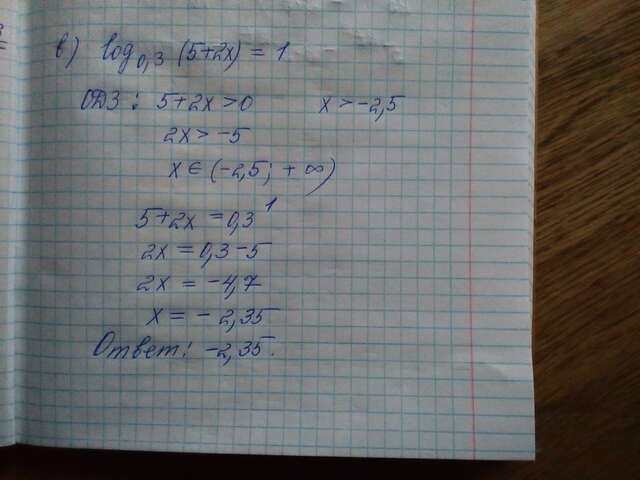 в) log₀,₃ (5+2x) = 1
ОДЗ: 5+2x>0 x>-2,5
2x>-5
x∈(-2,5; +∞)
5+2x=0,3¹
2x=0,3-5
2x=-4,7
x=-2,35
Ответ: -2,35.